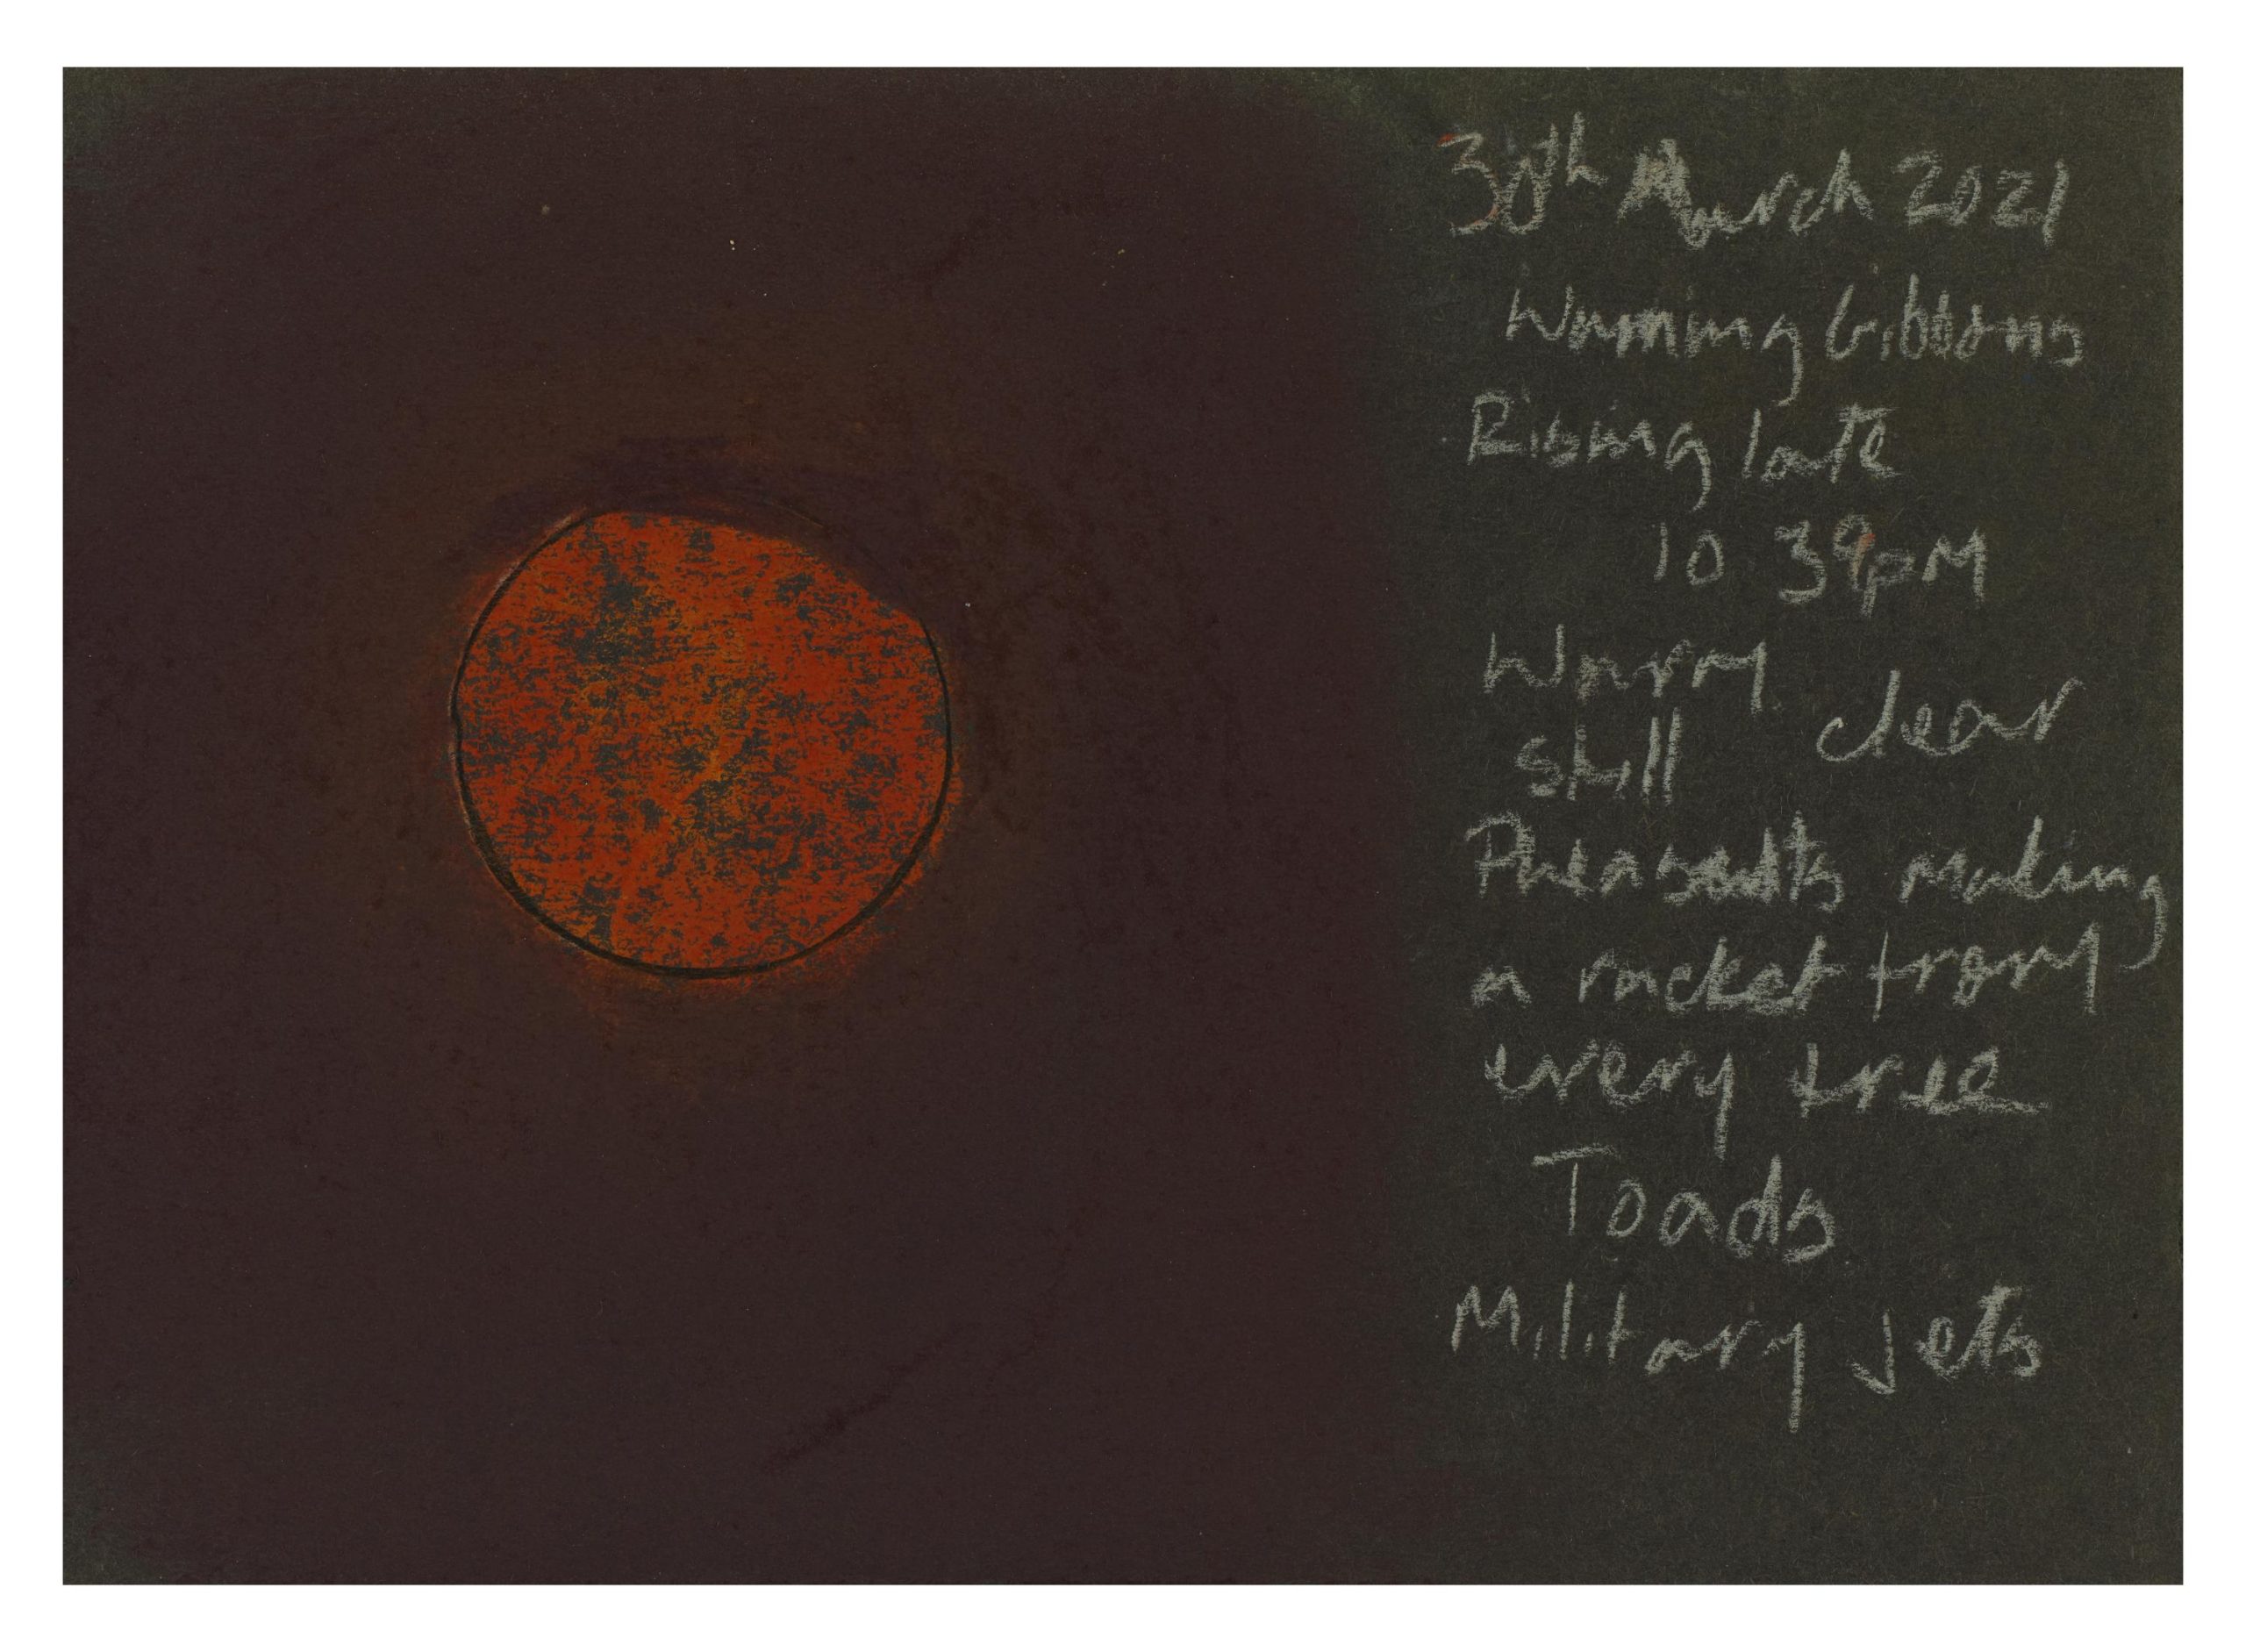 30th March 2021
Waning Gibbons
Rising late
10 39pM
Warm
still clear
Pheasants making
a racket from
every tree
Toads
Military Jets